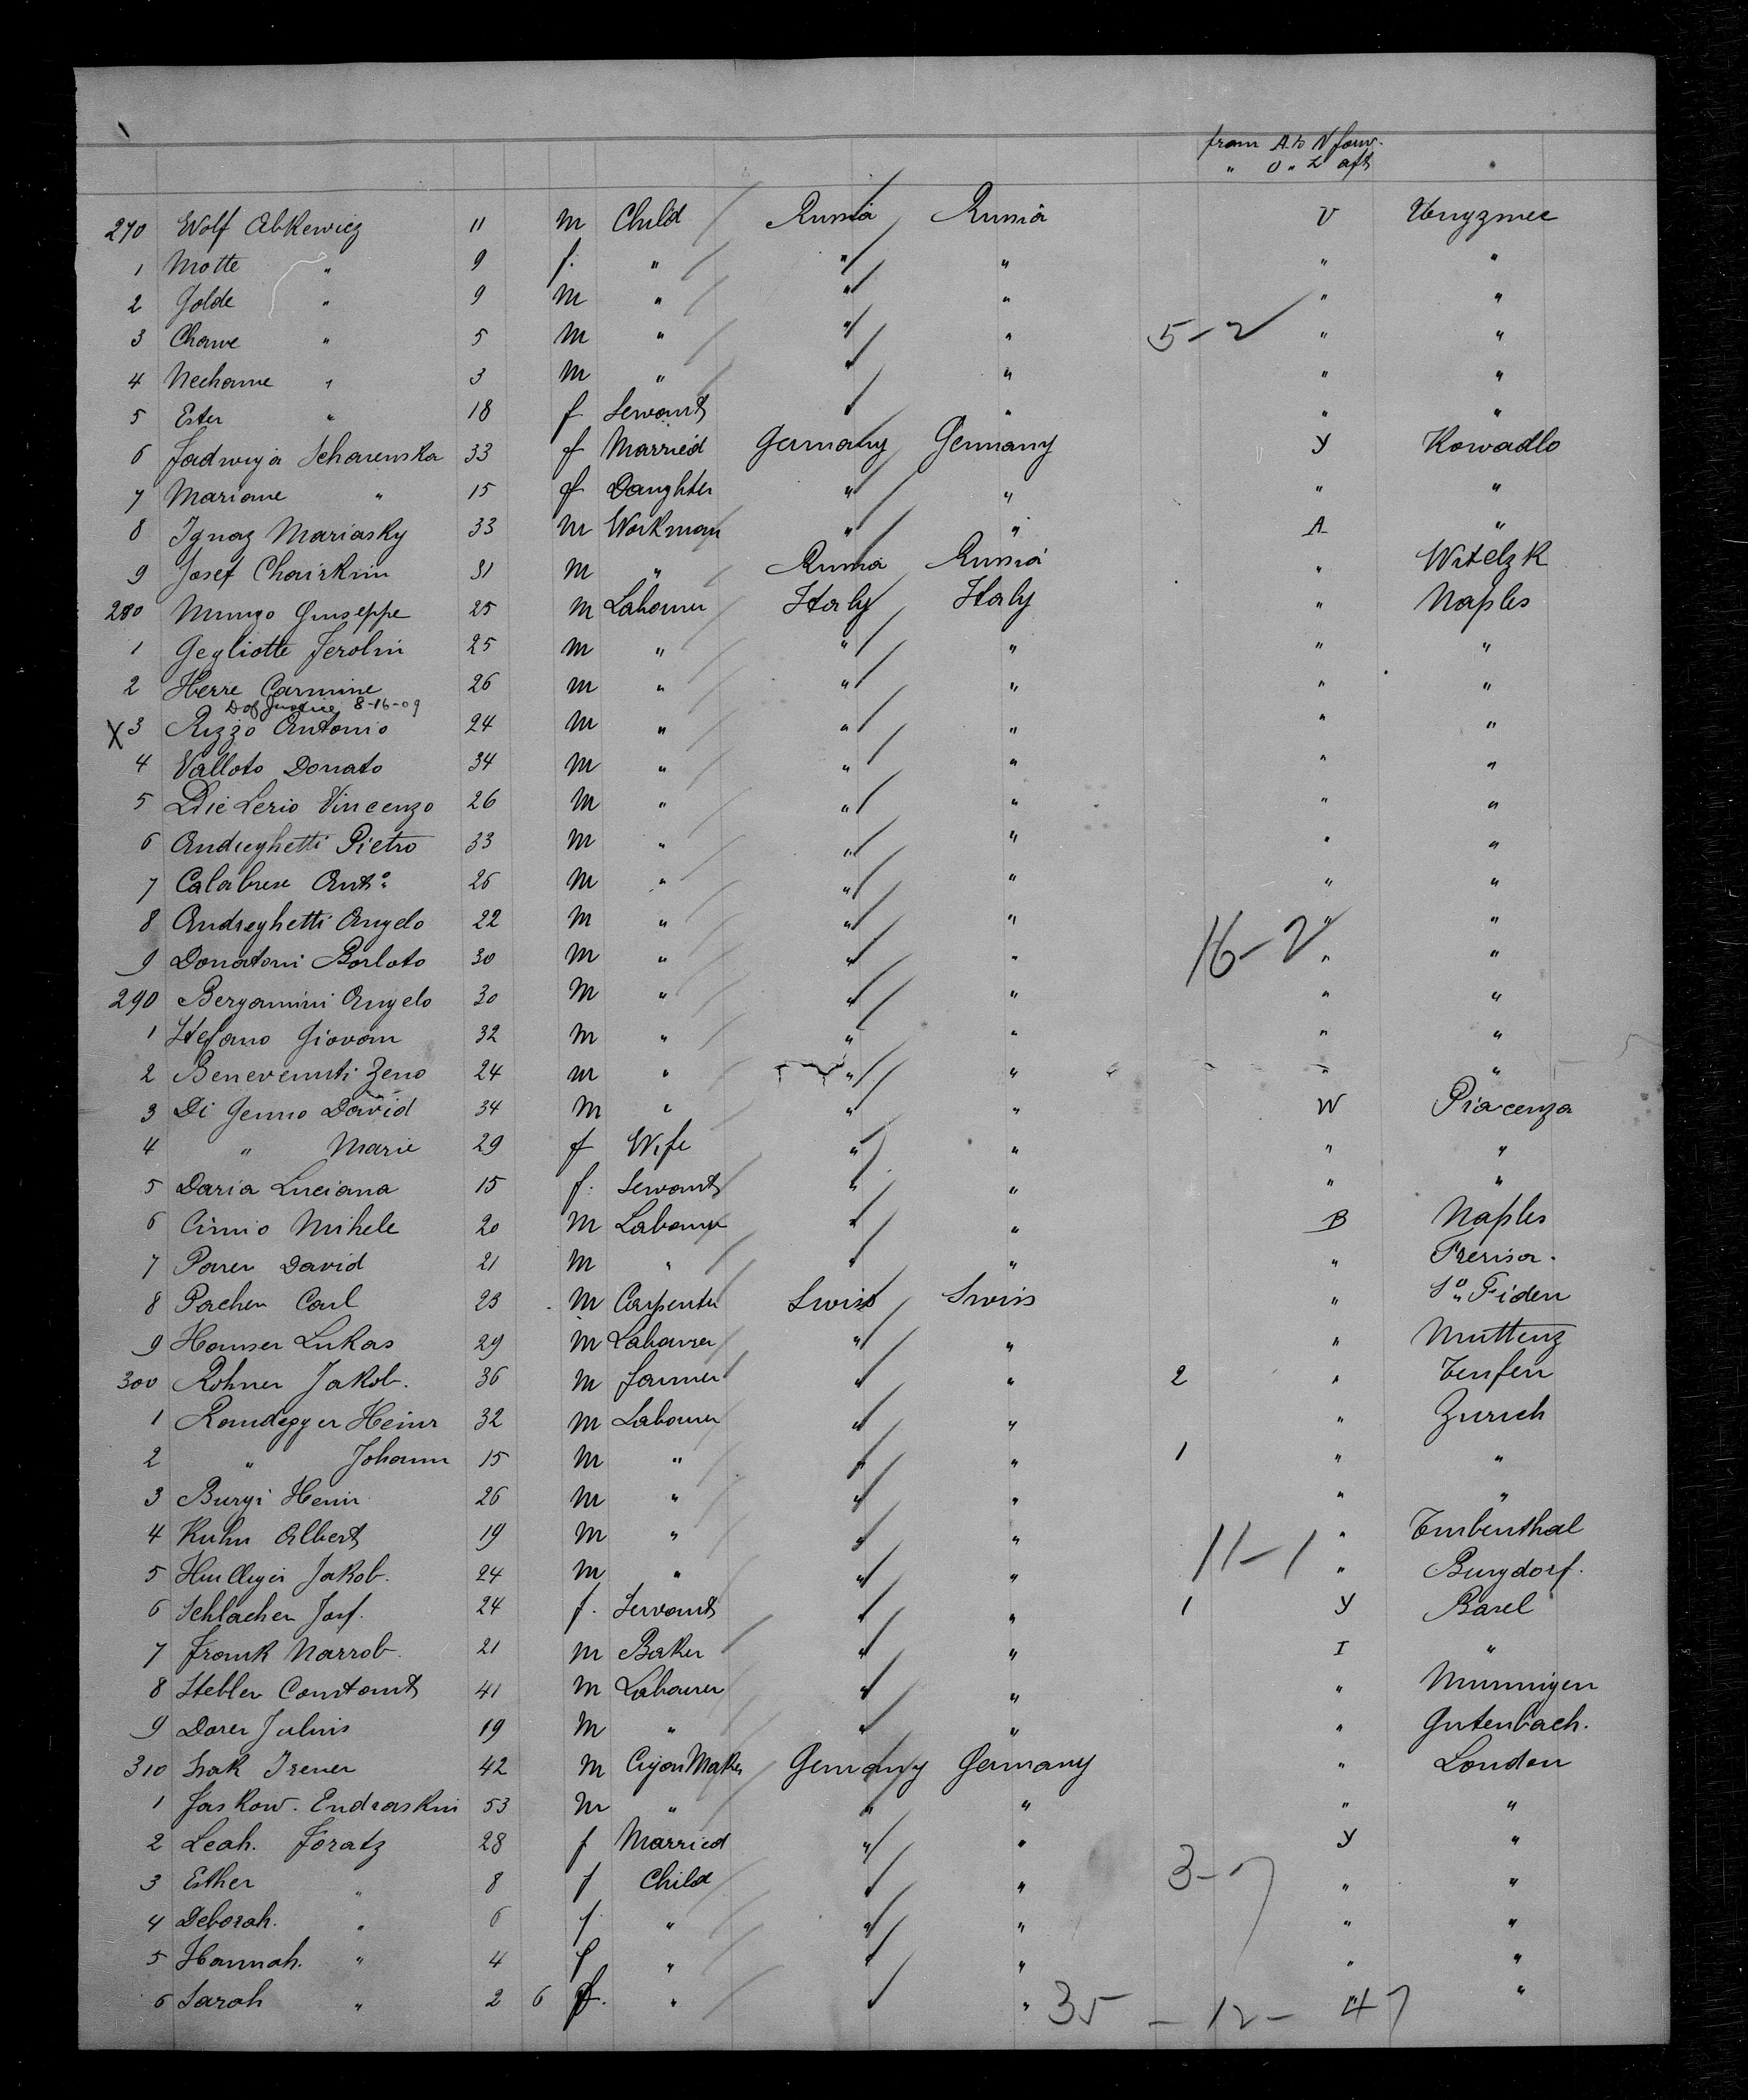 from A to N forw.
" O " Z aft
270 Wolf Abkewicz 11 m Child Russia Russia V
1 Motte " 9 f. " " " " "
2 Golde " 9 m " " " " "
3 Chawe " 5 m " " " 5-2 " "
4 Nechame " 3 m " " " " "
5 Ester " 18 f Servant " " " "
6 Jadwiga Scharenska 33 f Married Germany Germany Y Kowadlo
7 Mariane " 15 f Daughter " " " "
8 Ignaz Mariasky 33 m Workman " " A "
9 Josef Chairkin 31 m " Russia Russia " Witelzk
280 Mungo Giuseppe 25 m Labourer Italy Italy " Naples
1 Gegliotte Jerolin 25 m " " " " "
2 Herre Carmine 26 m " " " " "
D of Justice 8-16-09
X 3 Rizzo Antonio 24 m " " " " "
4 Valloto Donato 34 m " " " " "
5 Die Lerio Vincenzo 26 m " " " " "
6 Andreghetti Pietro 33 m " " " " "
7 Calabrese Anto. 26 m " " " " "
8 Andreghetti Angelo 22 m " " " 16-2 " "
9 Donatoni Borloto 30 m " " " " "
290 Bergamini Angelo 30 m " " " " "
1 Stefano Giovan 32 m " " " " "
2 Benevenuti Zeno 24 m " " " " "
3 Di Genno David 34 m " " " W Piacenza
4 " Marie 29 f Wife " " " "
5 Daria Luciana 15 f. Servant " " " "
6 Cimio Mihele 20 m Labourer " " B Naples
7 Parer David 21 m " " " "
8 Pacher Carl 23 m Carpenter Swiss Swiss " So. Fiden
9 Hauser Lukas 29 m Labourer " " " Muttenz
300 Rohner Jakob. 36 m farmer " " 2 " Teufen
1 Randegger Heinr 32 m Labourer " " " Zurich
2 " Johann 15 m " " " 1 " "
3 Burgi Heinr 26 m " " " " "
4 Kuhn Albert 19 m " " " 11-1 " Turbenthal
5 Jakob. 24 m " " " " Burgdorf.
6 Schlacher Josf. 24 f. Servant " " 1 Y Basel
7 Frank Narrob. 21 m Baker " " I "
8 Stebler Constant 41 m Labourer " " " Munnigen
9 Dorer Julius 19 m " " " " Gutenbach.
310 Isak Irener 42 m Cigar Maker Germany Germany " London
1 Jaskow. Endraskin 53 m " " " " "
2 Leah. Joratz 28 f Married " " Y "
3 Esther " 8 f Child " " 3-7 " "
4 Deborah. " 6 f " " " " "
5 Hannah. " 4 f " " " " "
6 Sarah " 2 6 f. " " " " "
35 - 12 - 47